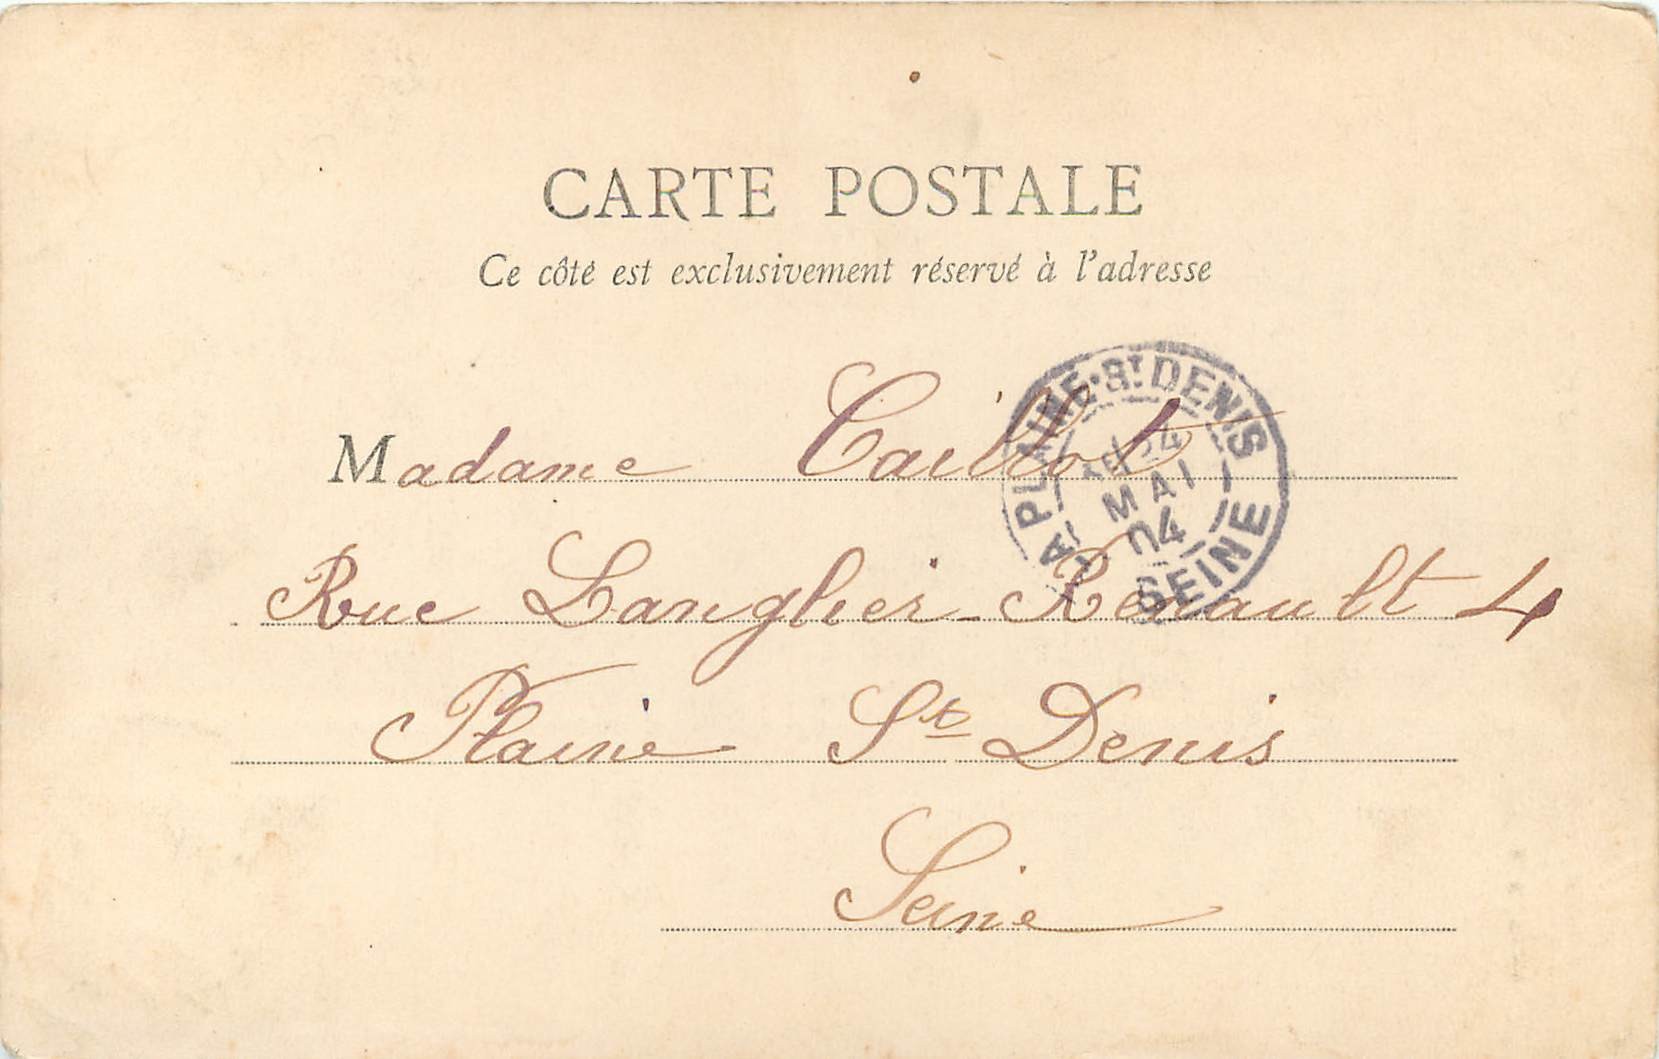 CARTE POSTALE
Ce côté est exclusivement réservé à l'adresse
LA PLAINE-ST DENIS
MAI
04
SEINE
Madame Caillot
Rue Langlier-Renault 4
Plaine St Denis
Seine